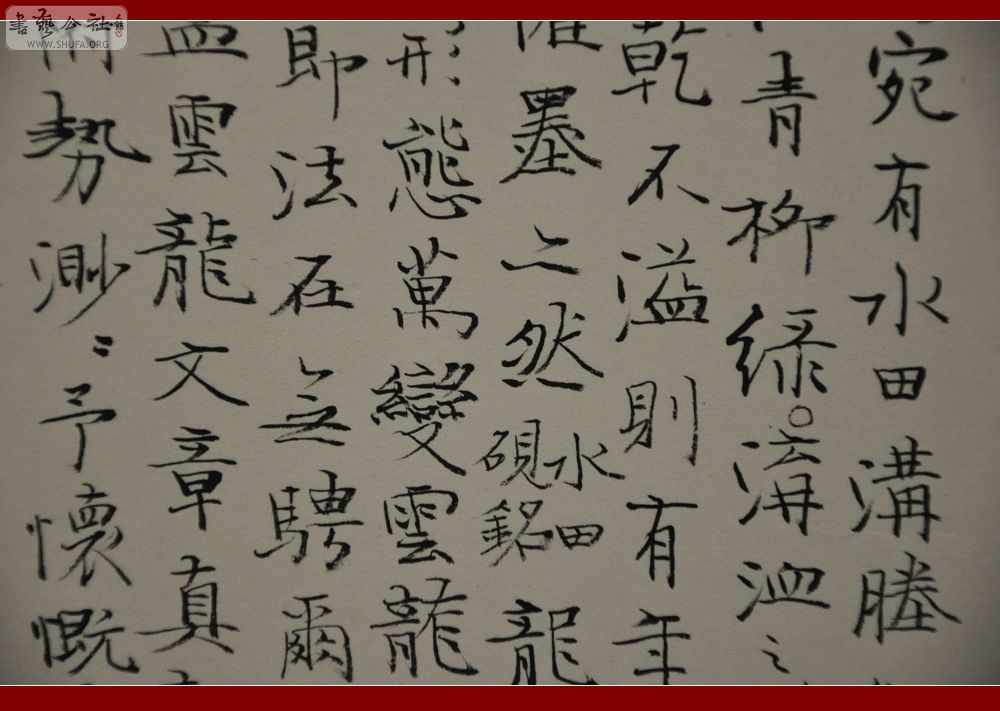 书艺公社
WWW.SHUFA.ORG
宛有水田溝塍
青柳緑溝洫之
乾不溢則有年
惟墨亦然水田硯銘龍
形態萬變雲龍
即法在無騁爾
雲龍文章真
勢渺渺予懷慨